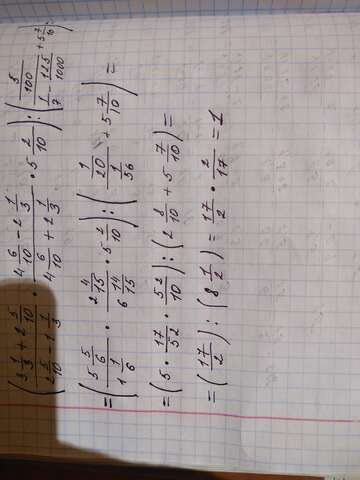 ((3 1/3 + 2 5/10)/(2 5/10 - 1 1/3) · (4 6/10 - 2 1/3)/(4 6/10 + 2 1/3) · 5 2/10) : ((5/100)/(1/7 - 125/1000) + 5 7/10) =
= ((5 5/6)/(1 1/6) · (2 4/15)/(6 14/15) · 5 2/10) : ((1/20)/(1/56) + 5 7/10) =
= (5 · 17/52 · 52/10) : (2 8/10 + 5 7/10) =
= (17/2) : (8 1/2) = 17/2 · 2/17 = 1